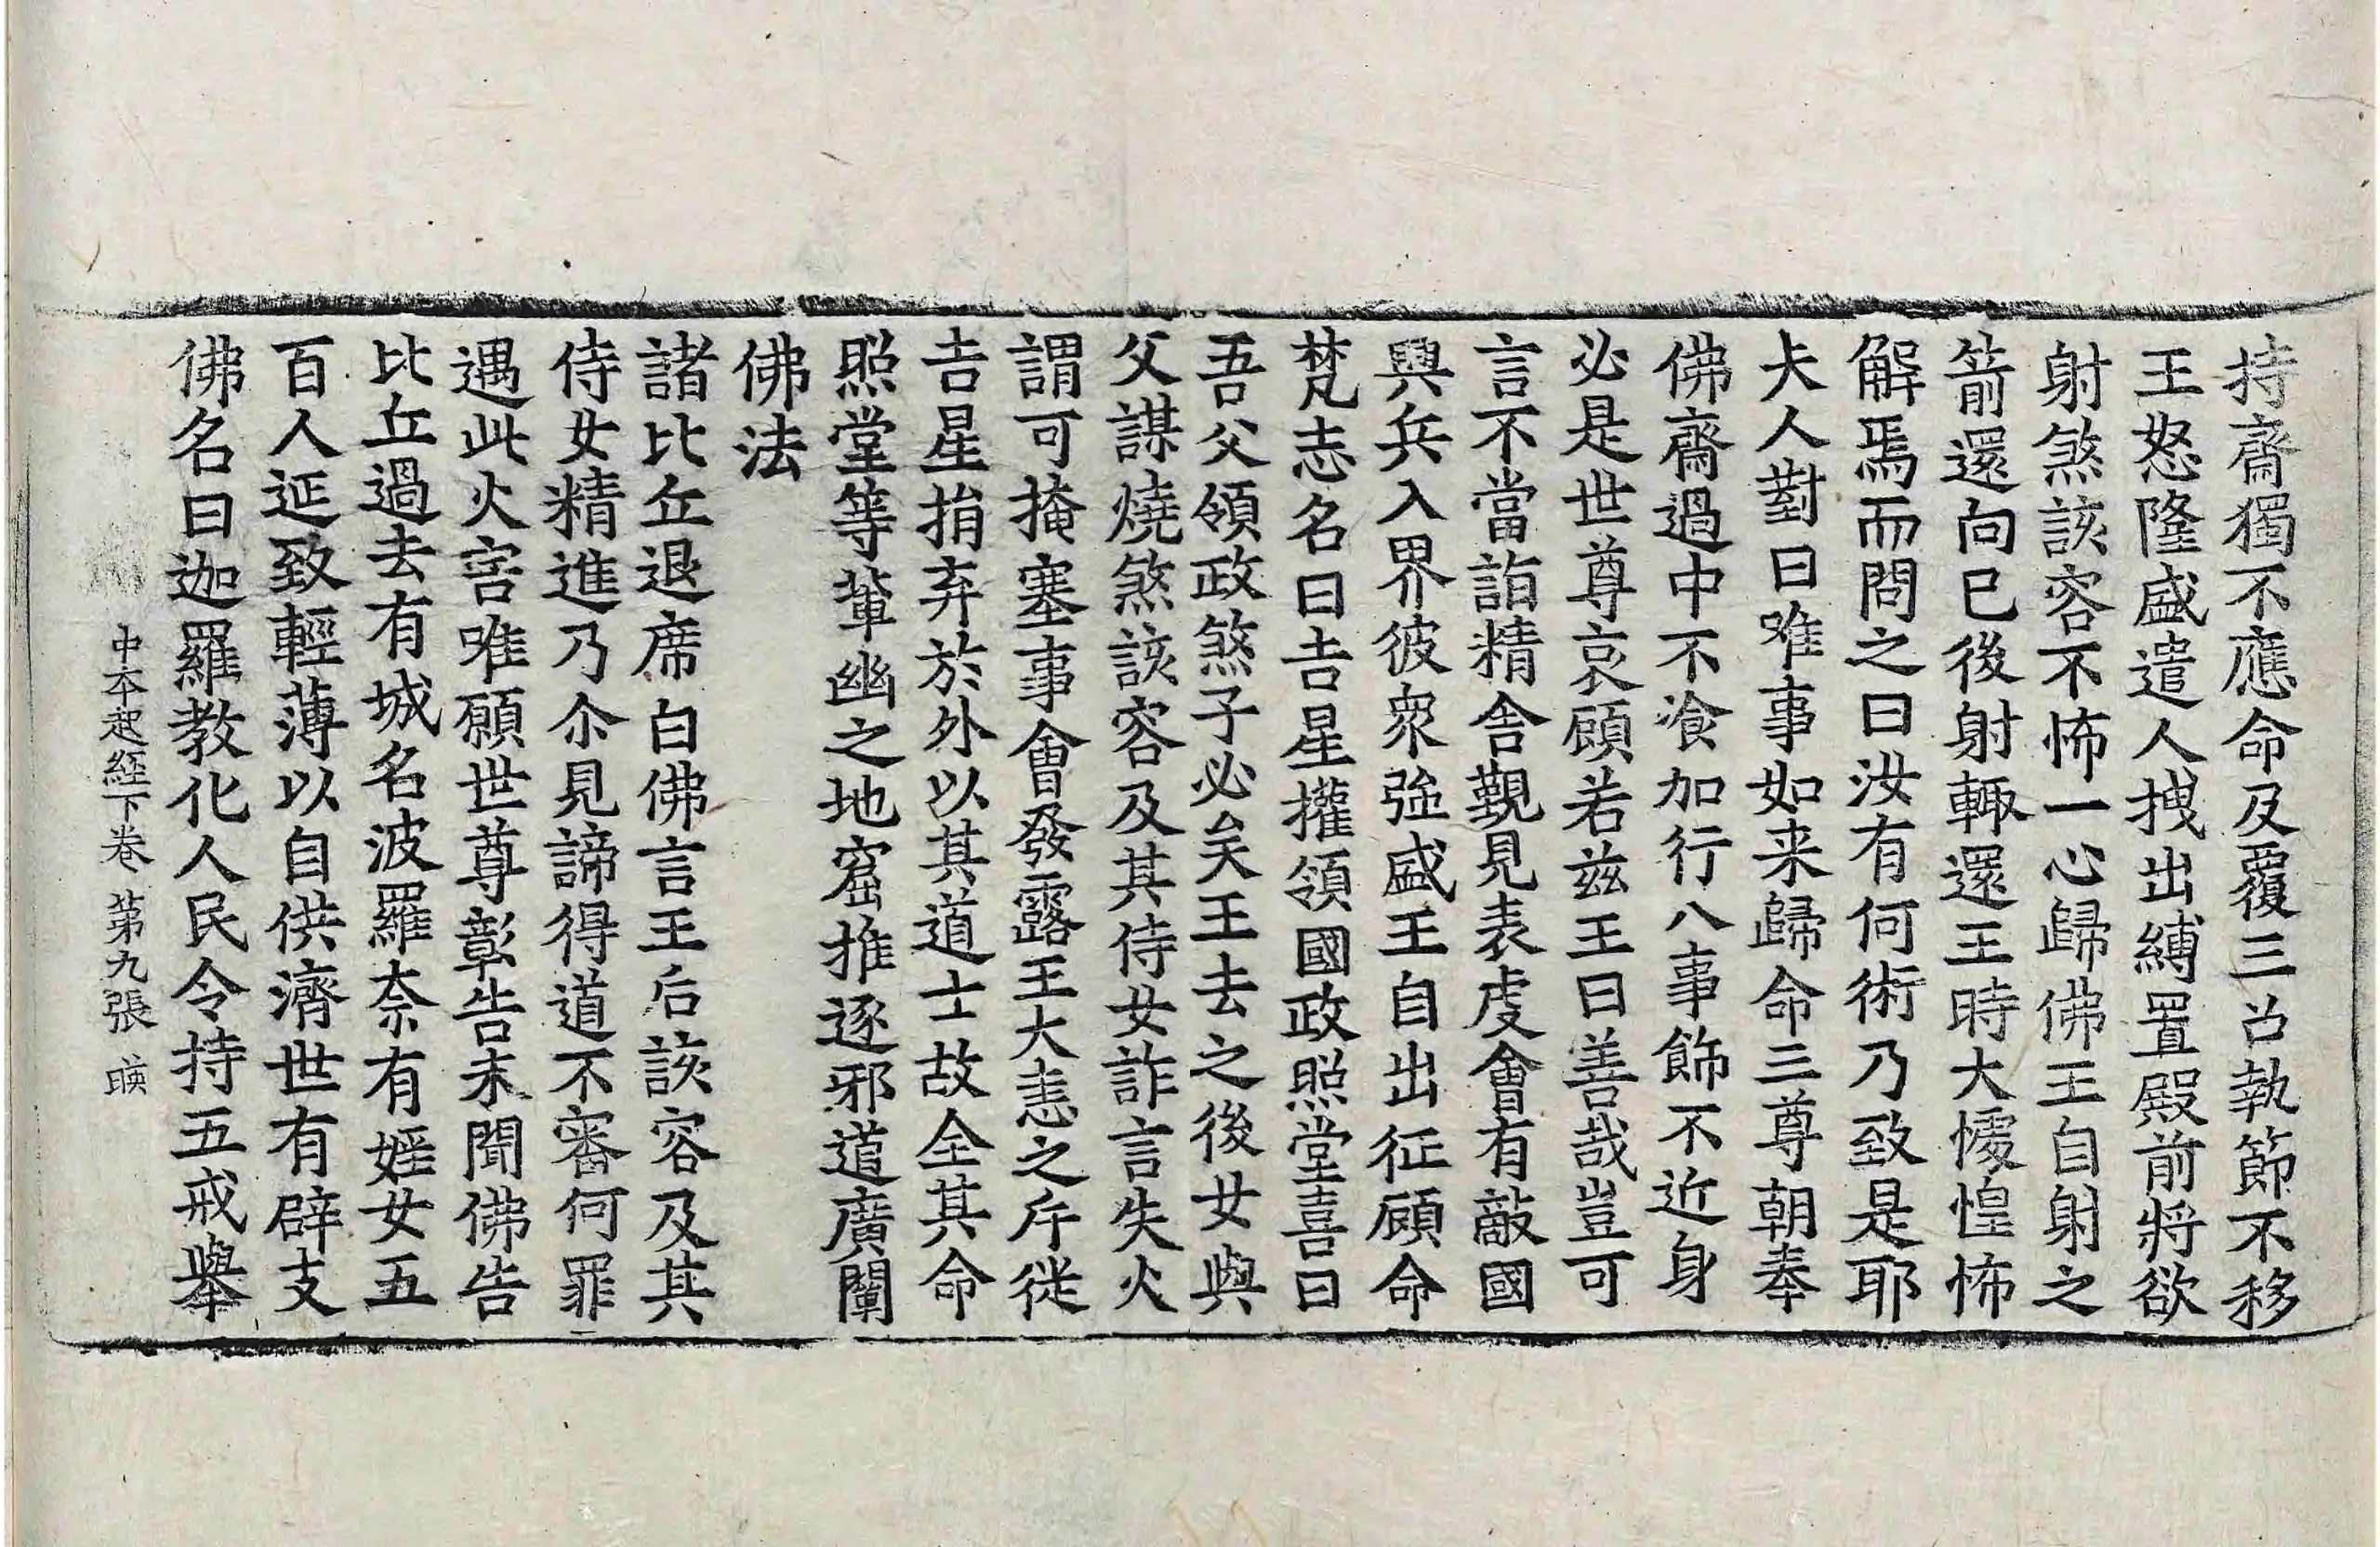 持齋獨不應命及覆三召執節不移
王怒隆盛遣人拽出縛置殿前將欲
射煞該容不怖一心歸佛王自射之
箭還向已後射輙還王時大懅惶怖
解焉而問之曰汝有何術乃致是耶
夫人對曰唯事如来歸命三尊朝奉
佛齋過中不飡加行八事飾不近身
必是世尊哀顧若兹王曰善哉豈可
言不當詣精舎覲見表虔會有敵國
興兵入界彼衆強盛王自出征顧命
梵志名曰吉星攉領國政照堂喜曰
吾父領政煞子必矣王去之後女與
父謀燒煞該容及其侍女詐言失火
謂可掩塞事會發露王大恚之斥徙
吉星捐弃於外以其道士故全其命
照堂等輩幽之地窟推逐邪道廣闡
佛法
諸比丘退席白佛言王后該容及其
侍女精進乃尒見諦得道不審何罪
遇此火害唯願世尊彰告未聞佛告
比丘過去有城名波羅奈有婬女五
百人延致輕薄以自供濟世有辟支
佛名曰迦羅教化人民令持五戒舉
中本起經下卷 第九張 暎